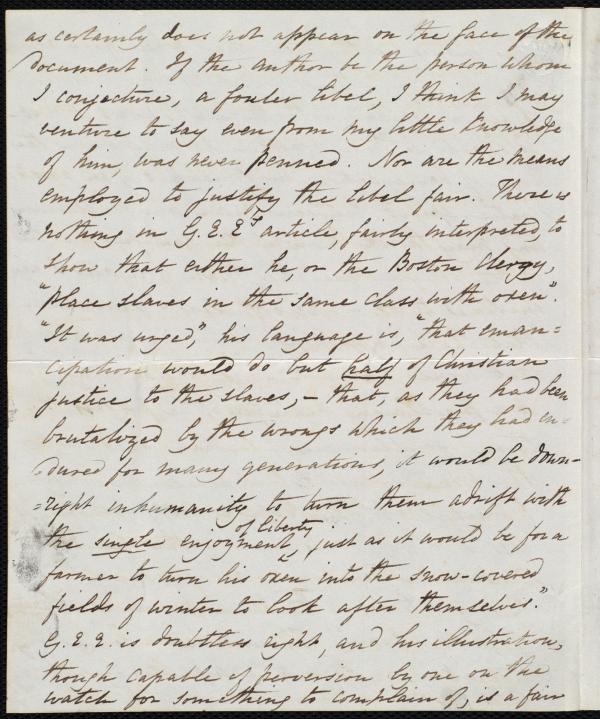 as certainly does not appear on the face of the
document. If the author be the person whom
I conjecture, a fouler libel, I think I may
venture to say even from my little knowledge
of him, was never penned Nor are the means
employed to justify the libel fair. There is
nothing in G.E.E's article, fairly interpreted, to
show that either he, or the Boston Clergy,
"place slaves in the same class with oxen".
"It was urged," his language is, "that eman=
cipation would do but half of Christian
justice to the slaves, - that, as they had been
brutalized by the wrongs which they had en-
dured for many generations, it would be down-
=right inhumanity to turn them adrift with
the single enjoyment of liberty, just as it would be for a
farmer to turn his oxen into the snow-covered
fields of winter to look after themselves."
G.E.E. is doubtless right, and his illustration,
though capable of perversion by one on the
watch for something to complain of, is a fair